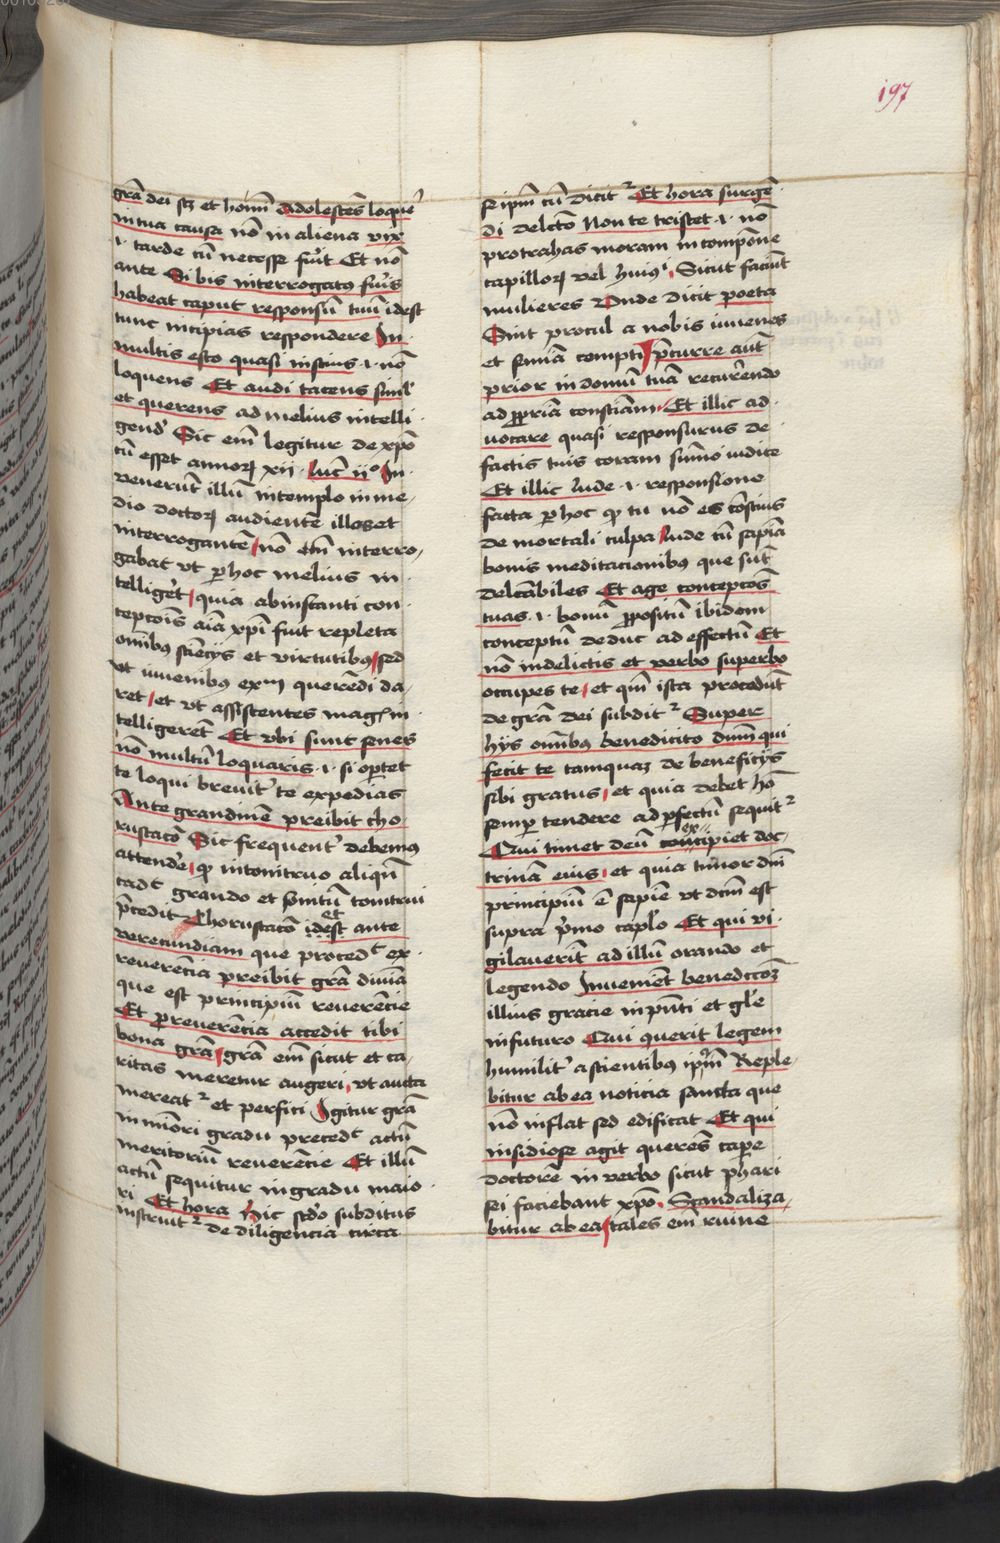 197
grā dei scʒ et homī Adolescēs loquer̄
in tua causa nō in aliena vix
.i. tarde cū necesse fuīt Et nō
ante Si bis interrogatꝯ fuīs
habeat caput responsū tuū idest
tunc incipias respondere In
multis esto quasi inscius .i. nō
loquens Et audi tacens simʼl
et querens ad melius intelli
gendʼ Sic em̄ legitur de xp̄o
cū esset annoꝝ xii . luc̄ iiº In
venerūt illū in templo in me
dio doctoꝝ audientē illos et
interrogantē nō em̄ interro
gabat vt ꝑ hoc melius in
telliget̄ quia ab instanti con
cepcōis aīa xp̄i fuit repleta
omībꝯ sciēcijs et virtutibꝯ sed
vt iuuenibꝯ exm̄ querēdi da
ret et vt assistentes magʼ in
telligerēt Et vbi sunt senes
nō multū loquaris .i. si oꝑtet
te loqui breuitʼ te expedias
Ante grandinē preibit cho
ruscacō Sic frequentʼ debemꝯ
attendēʼ ꝙ in tonitruo aliqn̄
cadᵗ grando et sonitū tonitrui
p̄cedit Choruscacō idest et ante
verecundiam que procedᵗ ex
reuerēcia preibit grā diuīa
que est principiū reuerēcie
Et ꝑ reuerēcia accedit tibi
bona grā grā em̄ sicut et ca
ritas meretur augeri vt aucta
mereatʳ et perfici Igitur grā
in miōri gradu precedᵗ actū
meritoriū reuerēcie Et illū
actū sequitur in gradu maio
ri Et hora Hic sc̄do subditus
instruitʳ de diligencia circa
seipm̄ cū dicitʳ Et hora surgē
di delcto Non te tristet .i. nō
protrahas moram in compōne
capilloꝝ vel huiꝯⁱ Sicut faciūt
mulieres Vnde dicit poeta
Sint procul a nobis iuuenes
et femīa compti p̄curre aūt
prior in domū tuā recurēndo
ad ꝓpriā consciām Et illic ad
uocare quasi responsurus de
factis tuis corram sūmo iudice
Et illic lude .i. responsione
facta ꝑ hoc ꝙ tu nō es cōscius
de mortali culpa lude cū sapīa
bonis meditacionibꝯ que sūt
delcābiles Et age concepcoēs
tuas .i. bonū ꝓpositū ibidem
conceptū deduc ad effectū Et
nō in delictis et verbo superbo
occupes te et qm̄ ista procedūt
de grā dei subditʳ Super
hijs omībꝯ benedicito dnm̄ qui
fecit te tamquaʒ de beneficijs
sibi gratus et quia debet hō
semꝑ tendere ad ꝑfectū sequitʳ
Qui timet deū ex concipiet doc
trinā eius et quia timor dnī
principiū ē sapiē vt dcm̄ est
supra p̄mo caplo Et qui vi
gilauerīt ad illū orando et
legendo Inueniēt benedccōʒ
illius gracie in pn̄ti et glīe
in futuro Qui querit legem
humilitʼ a scientibꝯ ip̄m Reple
bitur ab ea noticia sancta que
nō inflat sed edificat Et qui
insidiose agit querēs caꝑe
doctorē in verbo sicut phari
sei faciebant xp̄o Scandaliza
bitur ab ea tales em̄ ruine